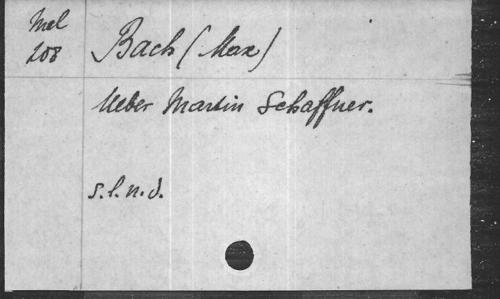 Mel
208
Bach (Max)
Ueber Martin Schaffner.
s.l.n.d.